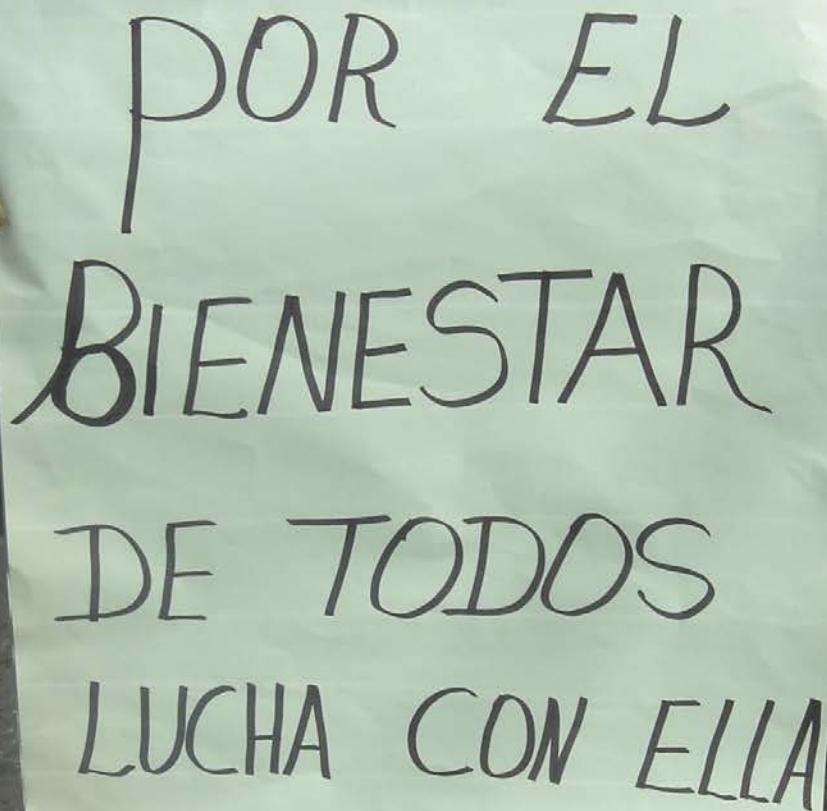 POR EL
BIENESTAR
DE TODOS
LUCHA CON ELLA